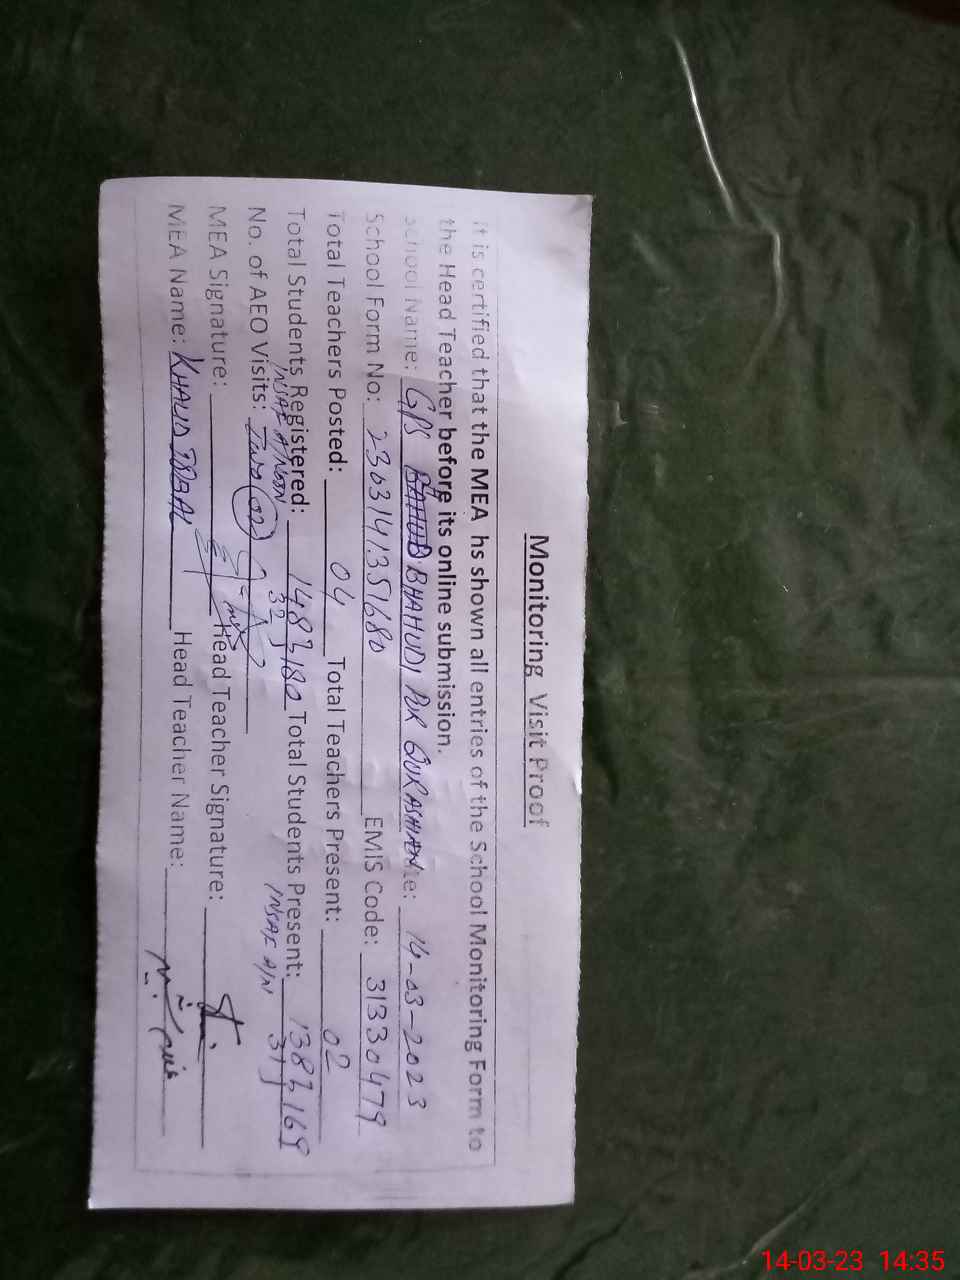 Monitoring Visit Proof
It is certified that the MEA hs shown all entries of the School Monitoring Form to
the Head Teacher before its online submission.
School Name: GPS BHAHUDI PUR QURASHIAN te: 14-03-2023
School Form No: 2303141351680 EMIS Code: 31330479
Total Teachers Posted: 04 Total Teachers Present: 02
Total Students Registered: 148 } 180 Total Students Present: 138 } 169
INSAF A/NOON 32 INSAF A/N 31
No. of AEO Visits: Two (02)
MEA Signature: Head Teacher Signature:
MEA Name: KHALID IQBAL Head Teacher Name:
14-03-23 14:35